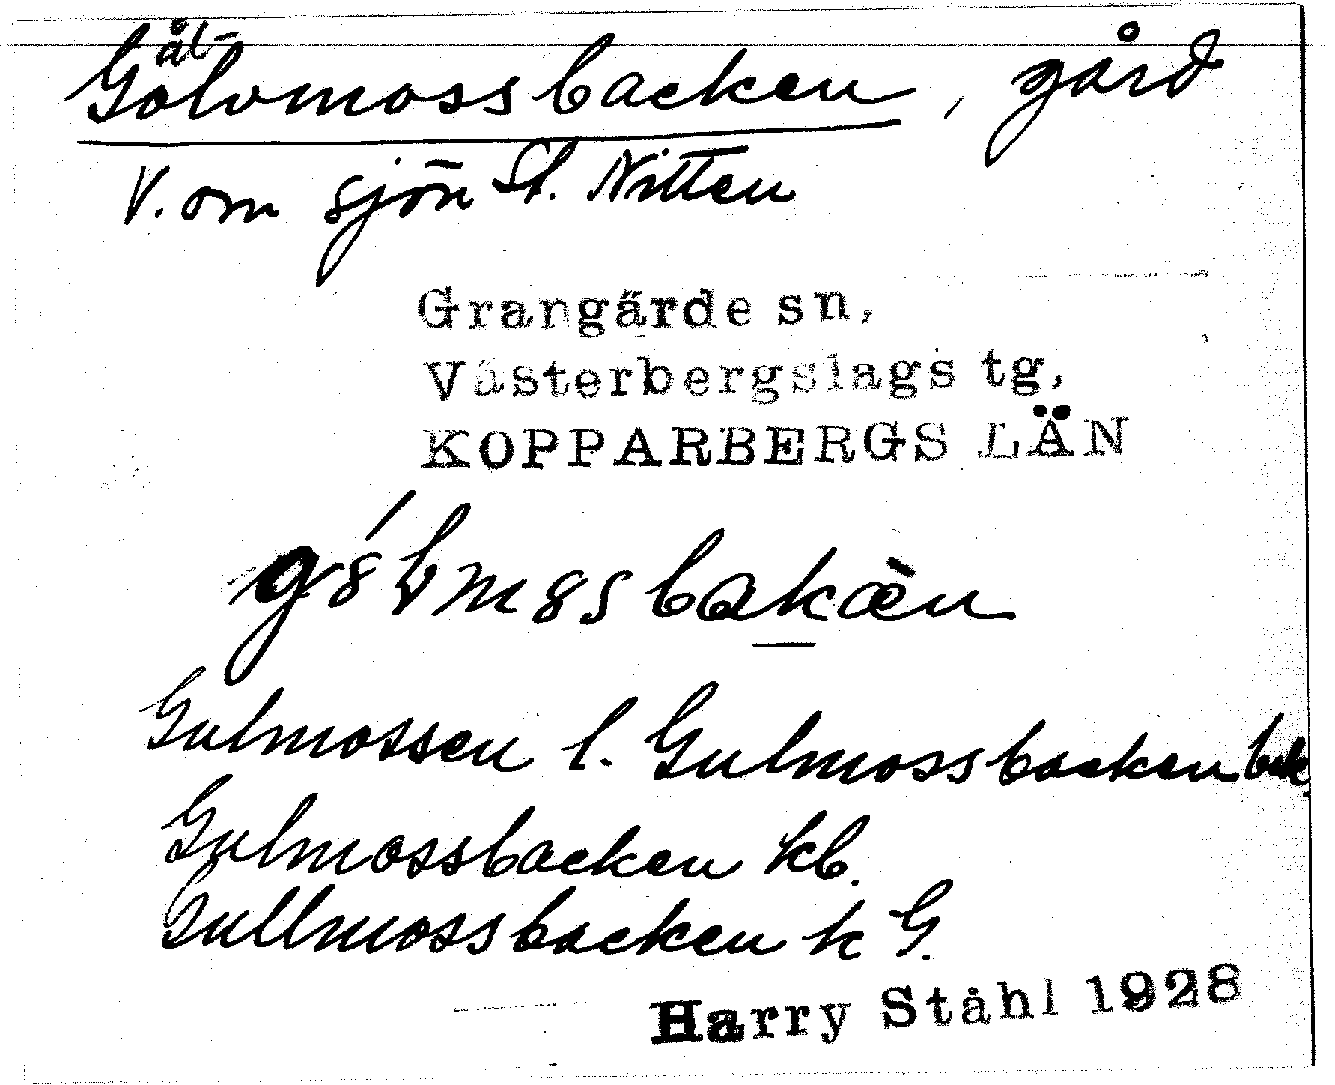 ål-
Golvmossbacken, gård
V. om sjön St. Nitten
Grangärde sn,
Västerbergslags tg,
KOPPARBERGS LÄN
Gulmossen l. Gulmossbacken bek.
Gulmossbacken kb.
Gullmossbacken k G.
Harry Ståhl 1928